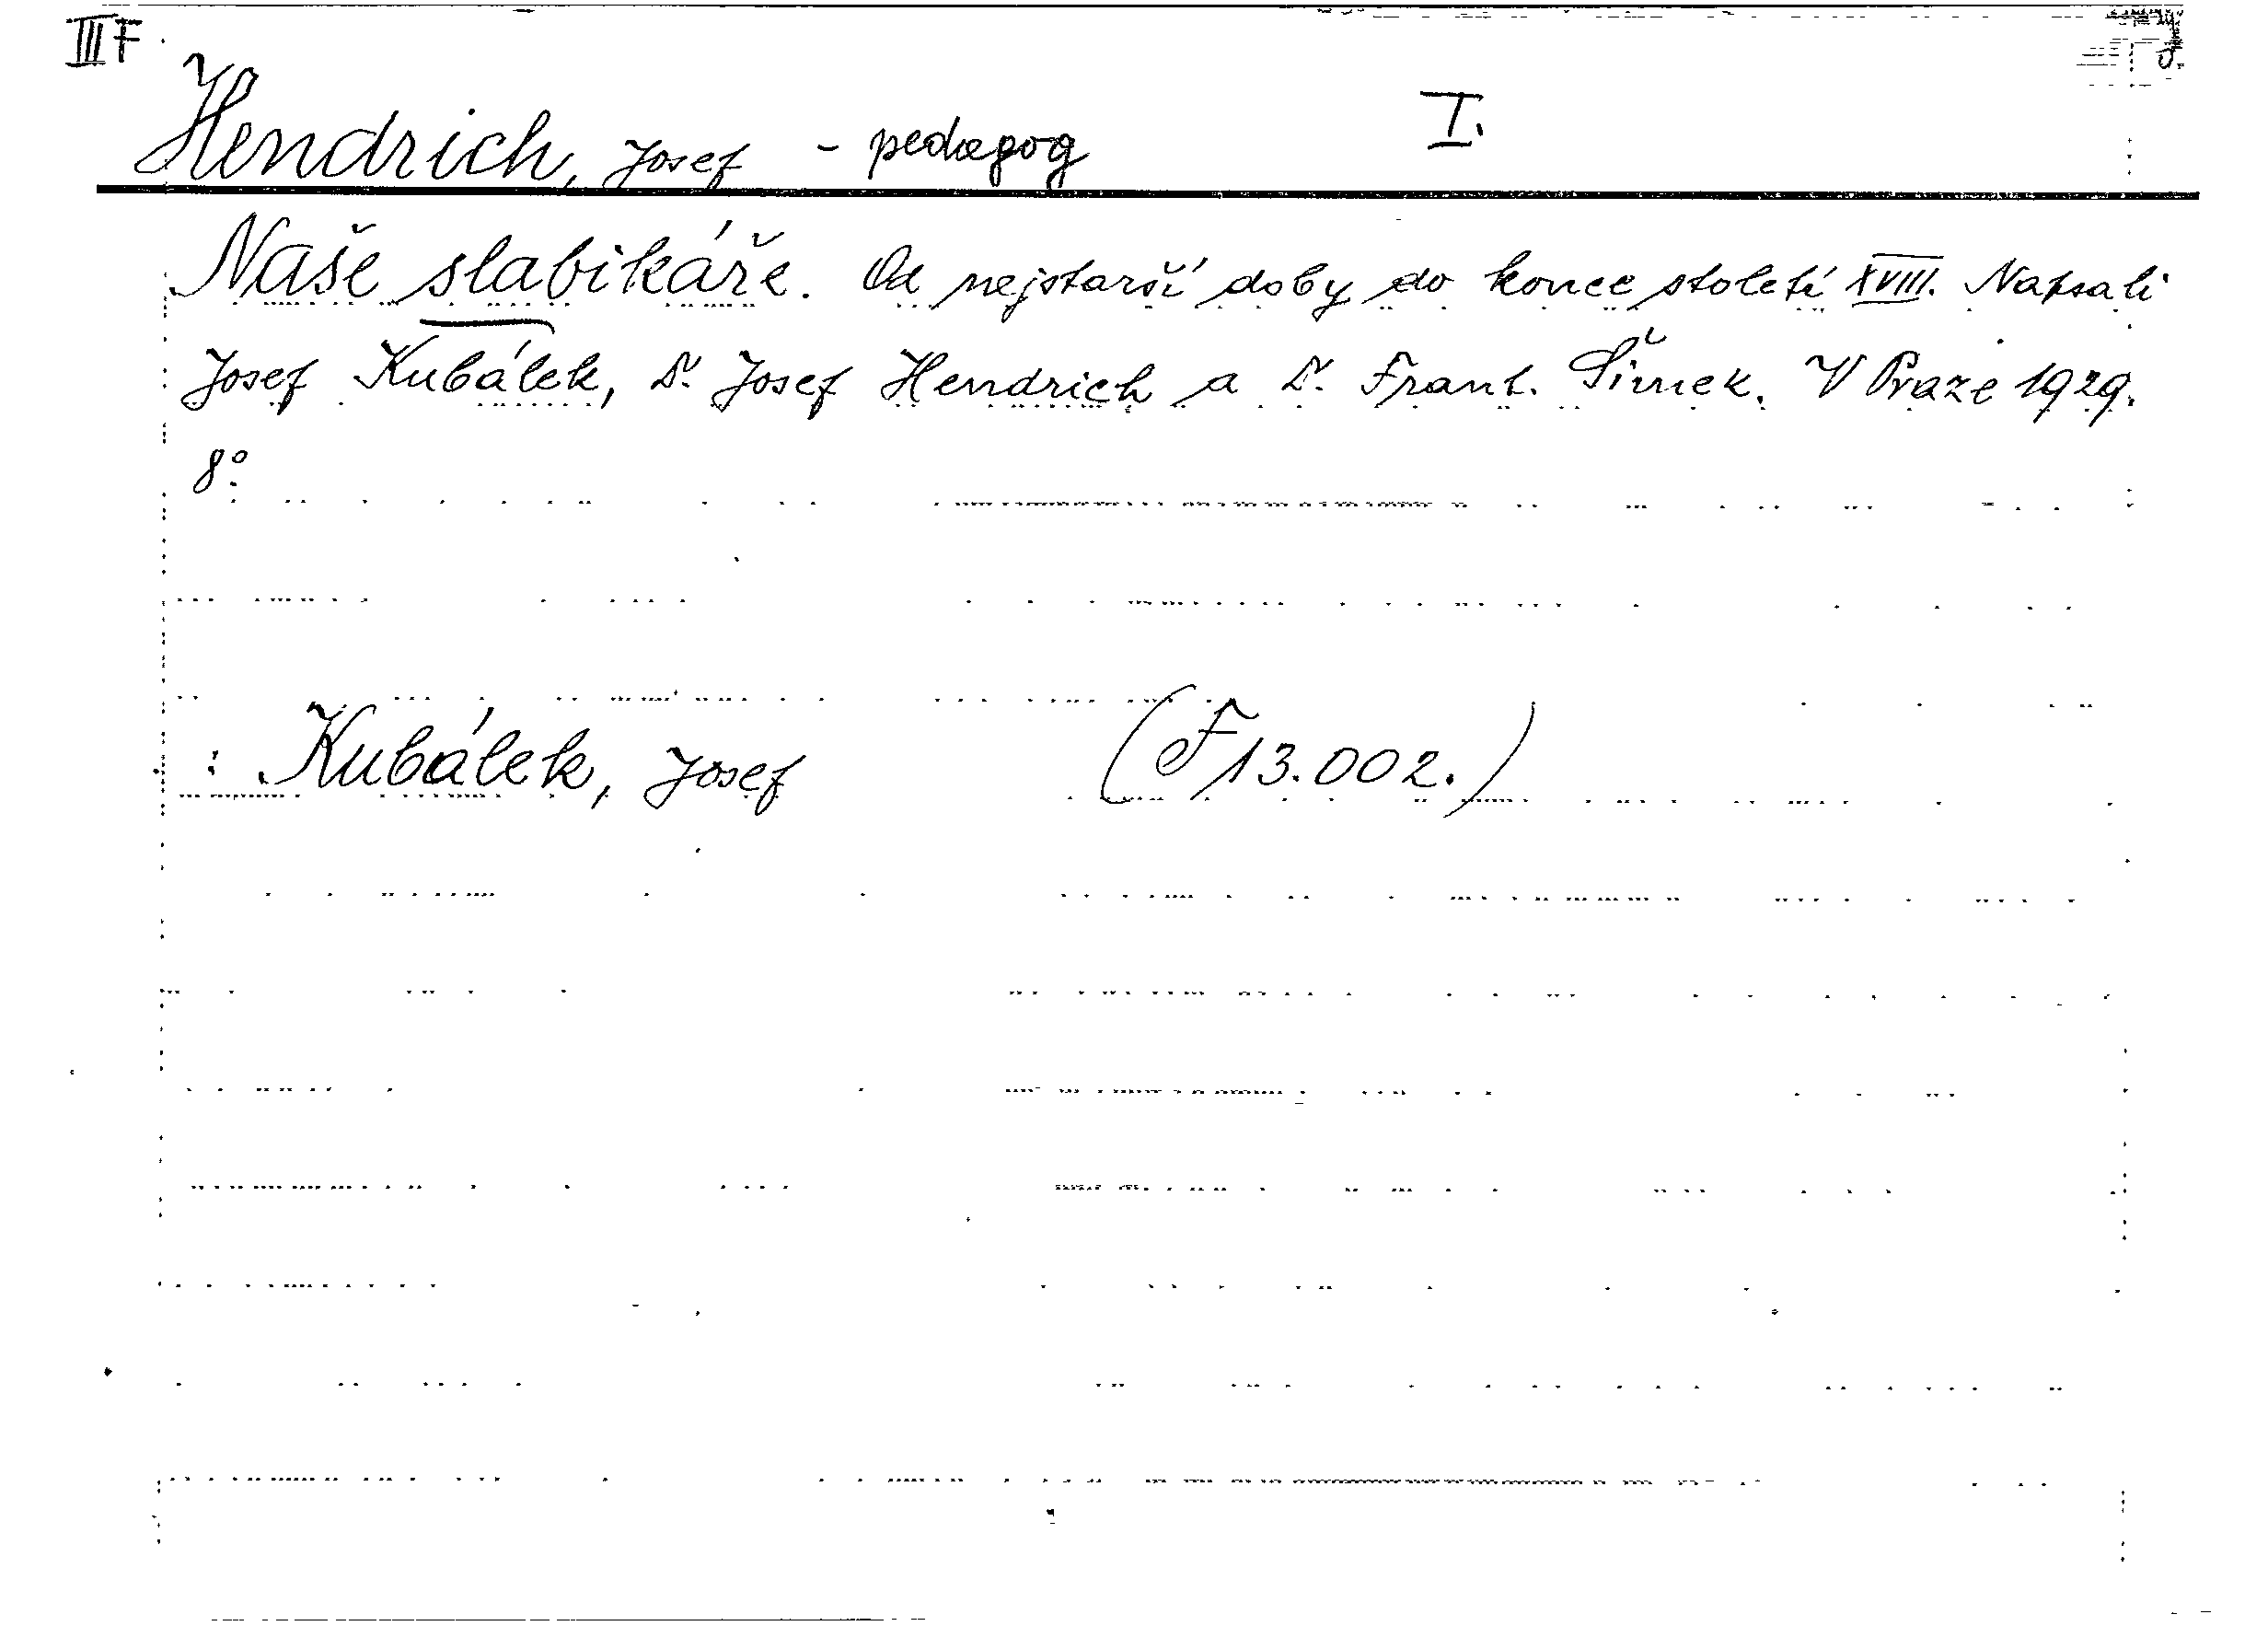 III F
Hendrich, Josef - pedagog I.
Naše slabikáře. Od nejstarší doby do konce století XVIII. Napsali
Josef Kubálek, Dr. Josef Hendrich a Dr. Frant. Šimek. V Praze 1929.
8°.
: Kubálek, Josef (F 13.002.)